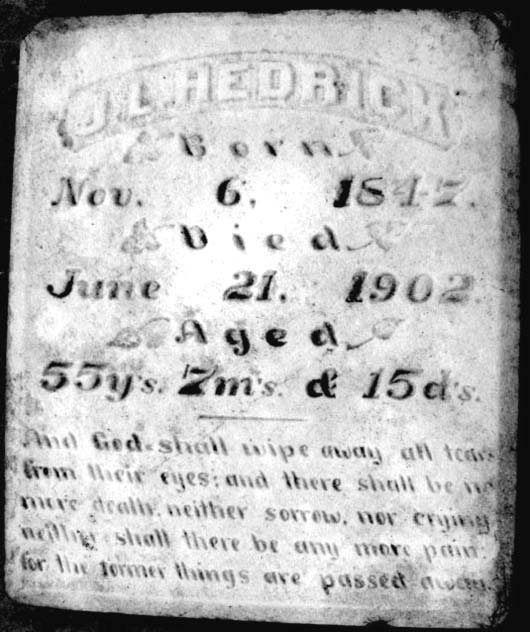 J.L. HEDRICK
Born
Nov. 6, 1847.
Died
June 21, 1902.
Aged
55y's. 7m's. & 15d's.
And God shall wipe away all tears
from their eyes; and there shall be no
more death, neither sorrow, nor crying
neither shall there be any more pain:
for the former things are passed away.